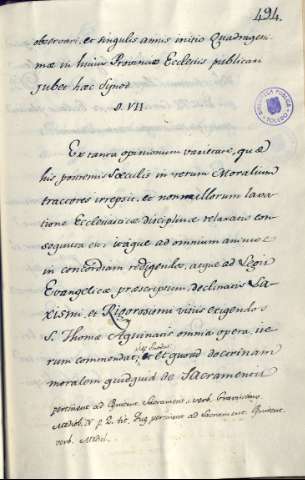 494.
observari, et singulis annis initio Quadragesi-
mæ in huius Provinciæ Ecclesiis publicari
jubet hæc Synod.
§. VII
Ex tanta opinionum varietate, quæ
his postremis Sæculis in rerum Moralium
tractores irrepsit, et nonnullorum laxa-
tione Ecclesiasticæ disciplinæ relaxatio con-
sequuta est; itaque ad omnium animos
in concordiam redigendos, atque ad Legis
Evangelicæ præscriptum, declinatis La-
xismi, et Rigorismi vitiis exigendos
S. Thomæ Aquinatis omnia opera ite-
rum commendat; et quoad doctrinam
moralem quidquid de Sacramentis
pertinent ad Sacrament. verb.
Mediol. p. 2. tit. pertinent ad Sacrament.
verb. Mediol.
BIBLIOTECA PUBLICA
TOLEDO